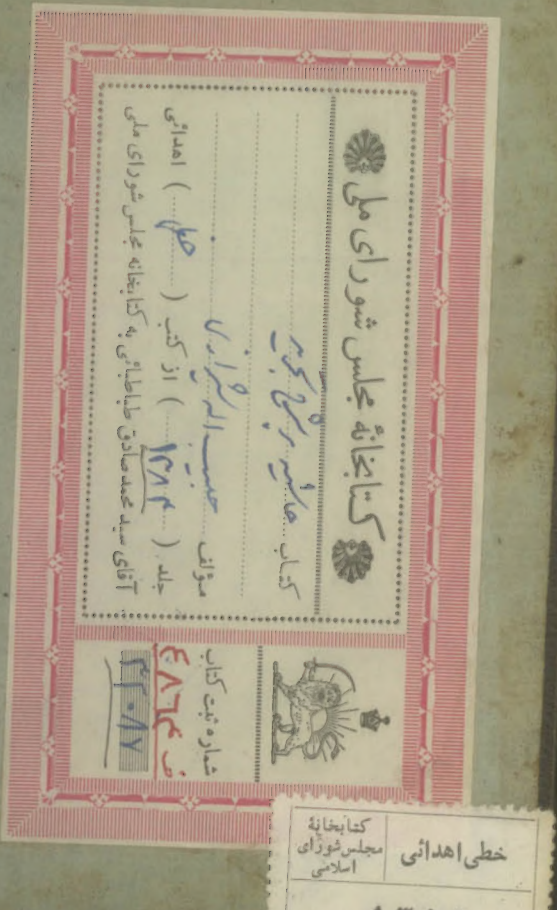 کتابخانهٔ مجلس شورای ملی
کتاب حاشیه بر شرح تجرید
مؤلف حبیب الله شیرازی
جلد (۱۲۸۴) از کتب (خطی) اهدائی
آقای سید محمدصادق طباطبائی به کتابخانه مجلس شورای ملی
شماره ثبت کتاب
۴۲۰۸۷
خطی اهدائی
کتابخانهٔ
مجلس شورای
اسلامی